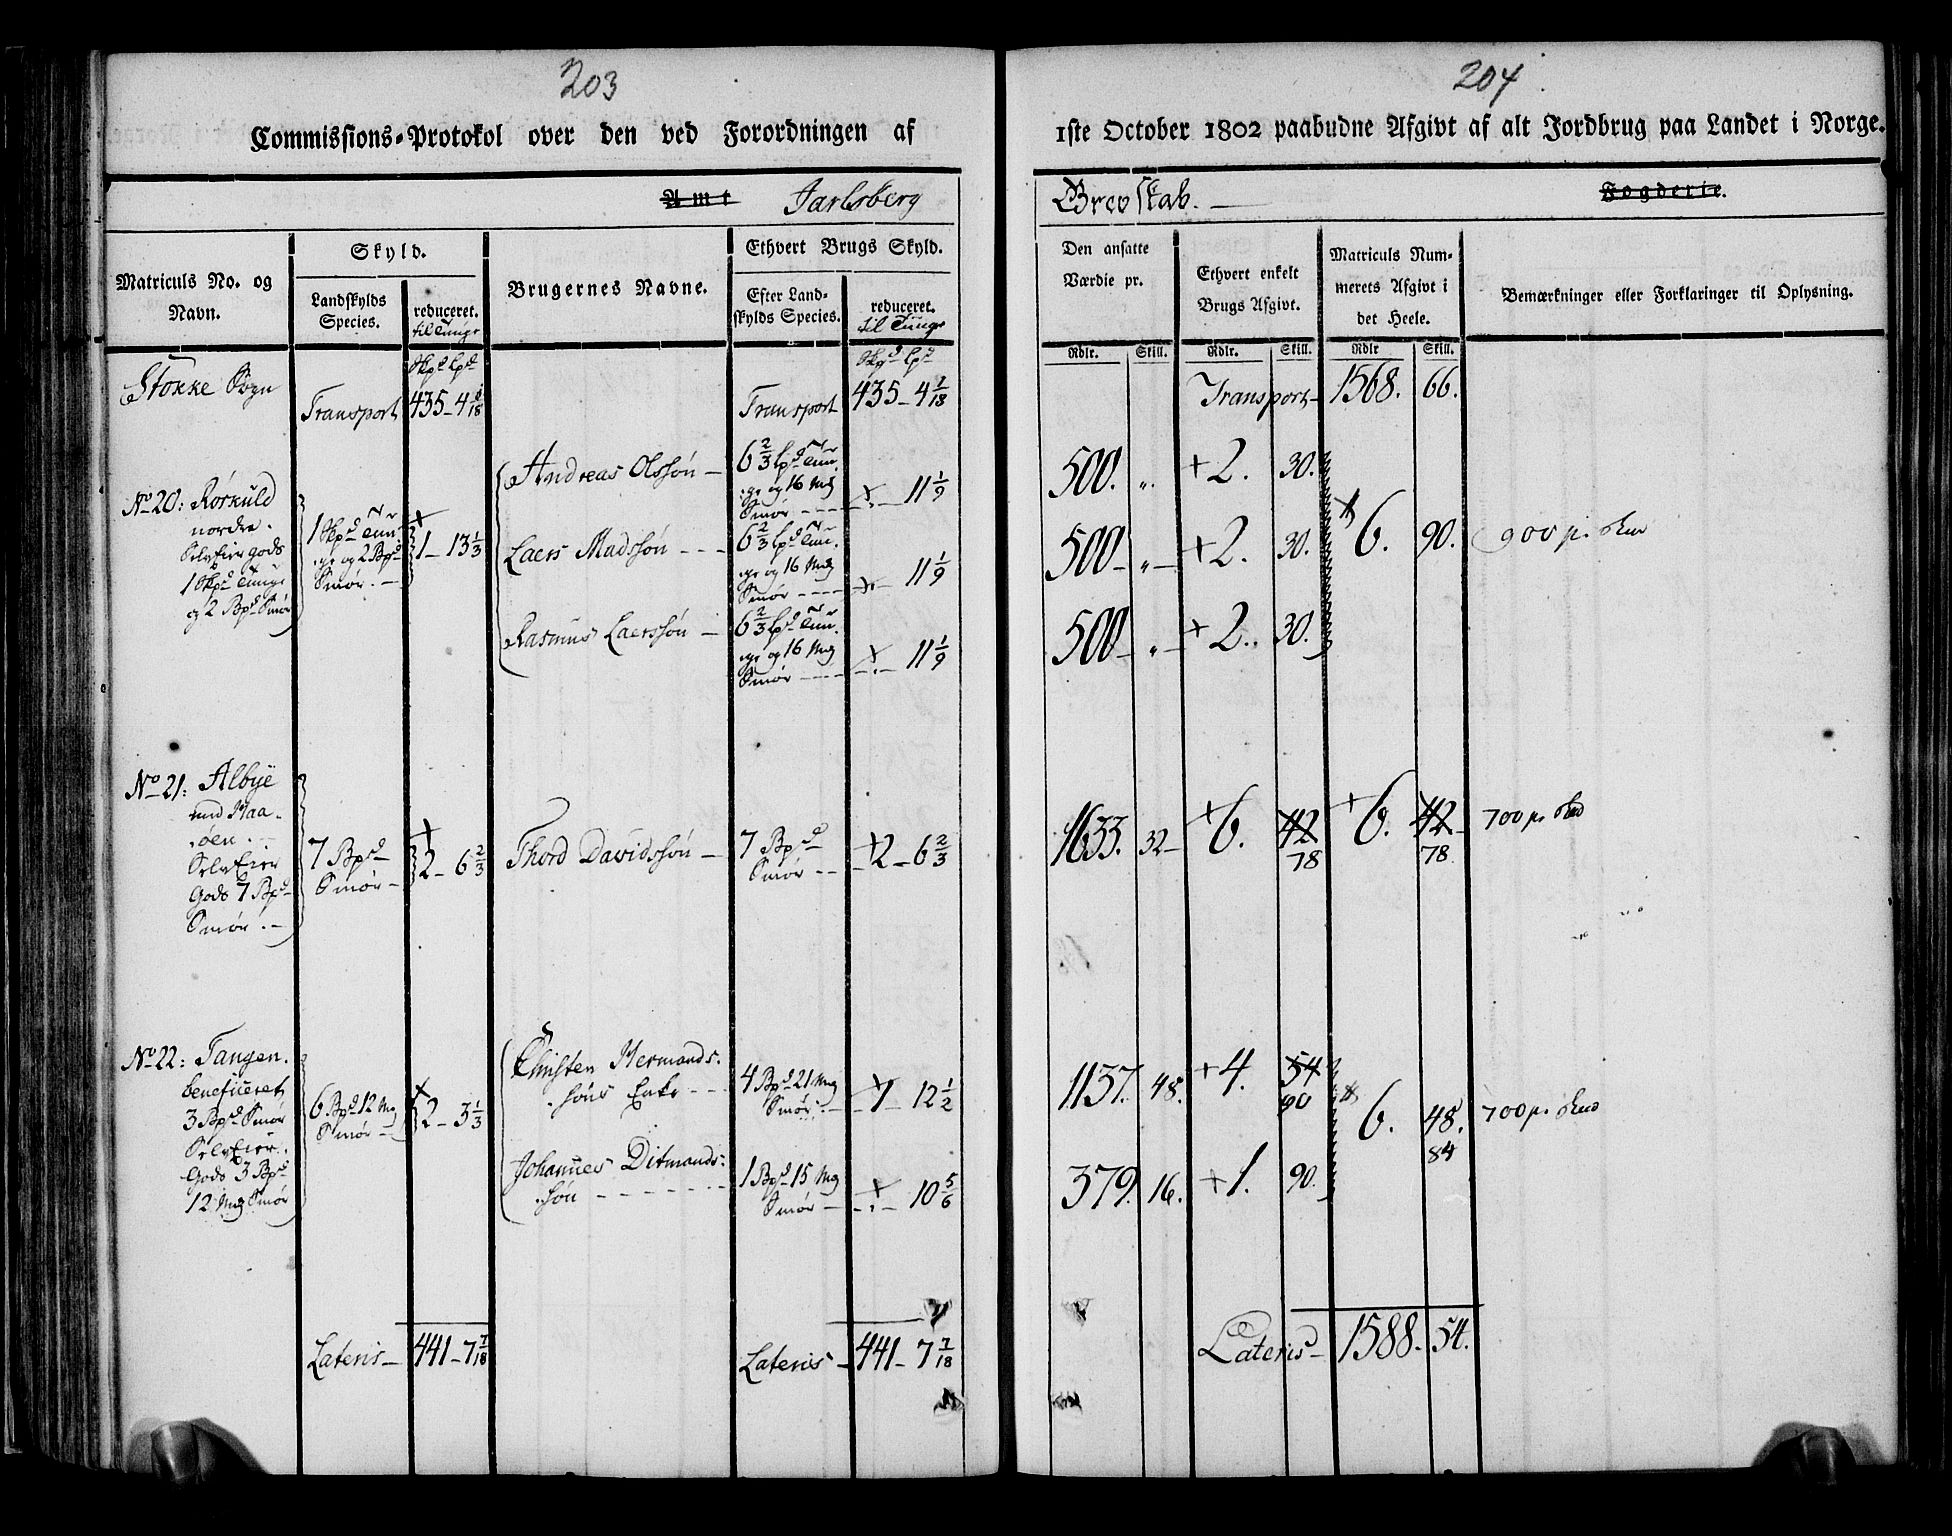 203
Commissions-Protokol over den ved Forordningen af
Amt Jarlsberg
Matriculs No. og Navn.
Skyld.
Landskylds Species.
reduceret.
til Tunge
Brugernes Navne.
Ethvert Brugs Skyld.
Efter Landskylds Species.
reduceret.
til Tunge
Stokke Sogn
Transport
Skpd Lpd
435 - 4 1/18
Transport
Skpd Lpd
435 - 4 1/18
No 20: Rørkuld
nordre.
Selveier gods
1 Skpd Tunge
og 2 Bpd Smør
1 Skpd Tun-
ge og 2 Bpd
Smør. -
1 - 13 1/3
Andreas Olssøn -
6 2/3 Lpd Tun-
ge og 16 Mg
Smør - - -
11 1/9
Laers Madssøn - - -
6 2/3 Lpd Tun-
ge og 16 Mg
Smør - - - -
11 1/9
Rasmus Laerssøn -
6 2/3 Lpd Tun-
ge og 16 Mg
Smør - - - -
11 1/9
No 21: Albye
med Haa-
øen. -
Selveier
Gods 7 Bpd
Smør. -
7 Bpd
Smør -
2 - 6 2/3
Thord Davidssøn -
7 Bpd
Smør - -
2 - 6 2/3
No 22: Tangen.
beneficeret
3 Bpd Smør
Selveier.
Gods 3 Bpd
12 Mg Smør
6 Bpd 12 Mg
Smør -
2 - 3 1/3
Christen Hermands-
søns Enke - - -
4 Bpd 21 Mg
Smør. -
1 - 12 1/2
Johannes Ditmands-
søn - - - - - - -
1 Bpd 15 Mg
Smør -
10 5/6
Lateris -
441 - 7 7/18
Lateris -
441 - 7 7/18
204
1ste October 1802 paabudne Afgivt af alt Jordbrug paa Landet i Norge.
Grevskab. Fogderie.
Den ansatte Værdie pr.
Ethvert enkelt Brugs Afgivt.
Matriculs Nummerets Afgivt i det Heele.
Bemærkninger eller Forklaringer til Oplysning.
Rdlr. Skill. Rdlr. Skill. Rdlr Skill.
Transport - 1568. 66.
500. „. + 2. 30.
500 - „ - + 2. 30. 6. 90. 900 p.
500 - „ - + 2. 30.
1633. 32 - + 6. 42 + 6. 42 - 700 p.
78 78.
1137. 48. + 4. 54
90
6. 48. 700 p.
84
379. 16. + 1. 90.
Lateris - 1588. 54.